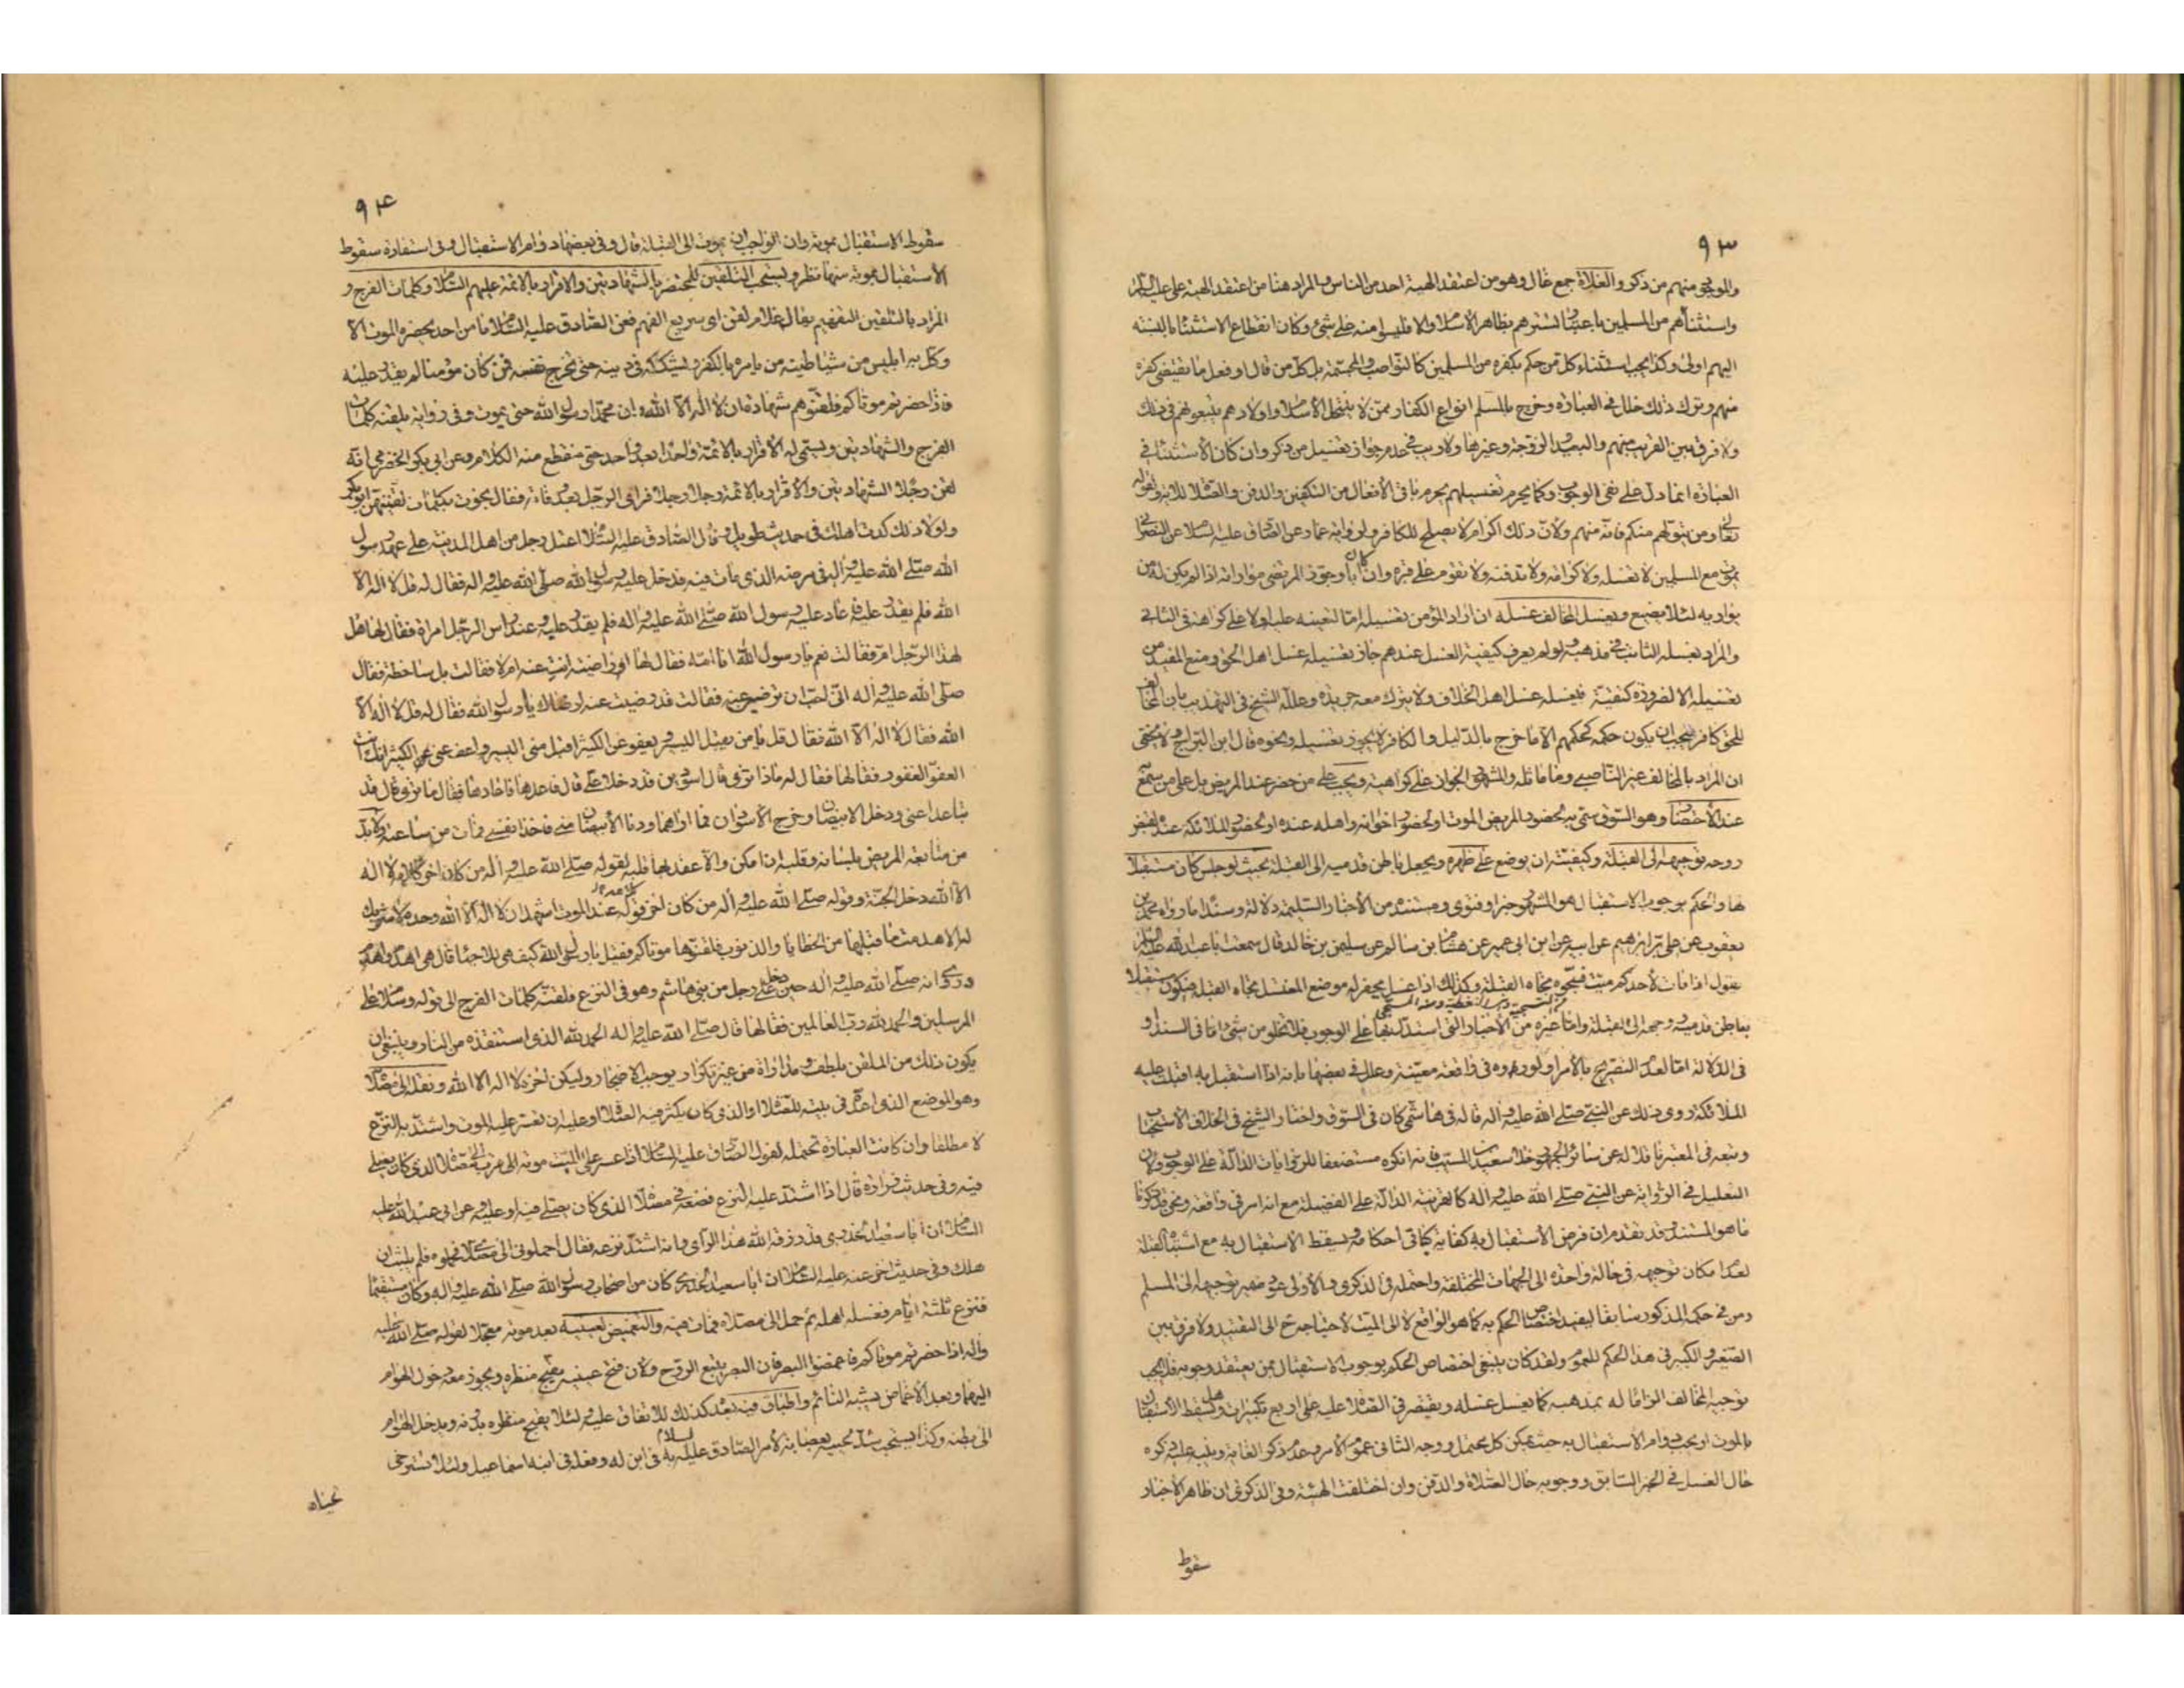 ٩٣
والموجود منهم من ذكر والغلاة جمع غال وهو من اعتقد الهية احد من الناس والمراد هنا من اعتقد الهية على عليه السلام
واستثناهم من المسلمين باعتبار تسترهم بظاهر الاسلام والا فليسوا منه على شئ وكان انقطاع الاستثنا بالنسبة
اليهم اولى وكذا يجب استثناء كل من حكم بكفره من المسلمين كالنواصب والمجسمة بل كل من قال او فعل ما يقتضى كفره
منهم وترك ذلك خلل فى العبارة وخرج بالمسلم انواع الكفار ممن لا ينتحل الاسلام واولادهم يتبعونهم فى ذلك
ولا فرق بين القريب منهم والبعيد الزوجة وغيرها ولا ريب فى عدم جواز تغسيل من ذكر وان كان الاستثنا فى
العبارة انما دل على نفى الوجوب وكما يحرم تغسيلهم يحرم باقى الافعال من التكفين والدفن والصلاة للاية ولقوله
تعالى ومن يتولهم منكم فانه منهم ولان ذلك اكرام لا يصلح للكافر ولرواية عمار عن الصادق عليه السلام عن النصرانى
يموت مع المسلمين لا تغسله ولا كرامة ولا تدفنه ولا تقوم على قبره وان كان ابا وجوز المرتضى مواراته اذا لم يكن له من
يواريه لئلا يضيع ويغسل المخالف غسله ان اراد المؤمن تغسيله اما لتعينه عليه اولا على كراهة فى الثانى
والمراد بغسله الثابت فى مذهبه ولو لم يعرف كيفية الغسل عندهم جاز تغسيله غسل اهل الحق ومنع المفيد من
تغسيله الا لضرورة تقية فيغسله غسل اهل الخلاف ولا يترك معه جريدة وعلله الشيخ فى التهذيب بان المخالف
للحق كافر فيجب ان يكون حكمه كحكمهم الا ما خرج بالدليل والكافر لا يجوز تغسيله ونحوه قال ابن البراج ولا يخفى
ان المراد بالمخالف غير الناصبى وما ماثله والمشهور الجواز على كراهية ويجب على من حضر عند المريض بل على من سمع
عند الاحتضار وهو السوق سمى به لحضور المريض الموت او لحضور اخوانه واهله عنده او لحضور الملائكة عنده لقبض
روحه توجيهه الى القبلة وكيفيته ان يوضع على ظهره ويجعل باطن قدميه الى القبلة بحيث لو جلس كان مستقبلا
لها والحكم بوجوب الاستقبال هو المشهور خبرا وفتوى ومستنده من الاخبار السليمة دلالة وسندا ما رواه محمد بن
يعقوب عن على بن ابراهيم عن ابيه عن ابن ابى عمير عن هشام بن سالم عن سليمن بن خالد قال سمعت ابا عبد الله عليه السلام
يقول اذا مات لاحدكم ميت فسجوه تجاه القبلة وكذلك اذا غسل يحفر له موضع المغتسل تجاه القبلة فيكون مستقبلا
بباطن قدميه ووجهه الى القبلة واما غيره من الاخبار التى استدل بها على الوجوب فلا تخلو من شئ اما فى السند او
فى الدلالة اما لعدم التصريح بالامر او لوروده فى واقعة معينة وعلل فى بعضها بانه اذا استقبل به اقبلت عليه
الملائكة روى ذلك عن النبى صلى الله عليه واله قاله فى هاشمى كان فى السوق واختار الشيخ فى الخلاف الاستحباب
وتبعه فى المعتبر ناقلا له عن سائر الجمهور خلا سعيد بن المسيب فانه انكره مستضعفا للروايات الدالة على الوجوب ولان
التعليل فى الرواية عن النبى صلى الله عليه واله كالقرينة الدالة على الفضيلة مع انه امر فى واقعة ونحن قد ذكرنا
ما هو المستند وقد تقدم ان فرض الاستقبال به كفاية كباقى احكامه ويسقط الاستقبال به مع اشتباه القبلة
لعدم امكان توجيهه فى حالة واحدة الى الجهات المختلفة واحتمله فى الذكرى والاولى عود ضمير توجيهه الى المسلم
ومن فى حكمه المذكور سابقا ليفيد اختصاص الحكم به كما هو الواقع لا الى الميت لاحتياجه ح الى التقييد ولا فرق بين
الصغير والكبير فى هذا الحكم للعموم ولقد كان ينبغى اختصاص الحكم بوجوب الاستقبال بمن يعتقد وجوبه فلا يجب
توجيه المخالف الزاما له بمذهبه كما يغسل غسله ويقتصر فى الصلاة عليه على اربع تكبيرات وهل يسقط الاستقبال
بالموت او يجب دوام الاستقبال به حيث يمكن كل محتمل ووجه الثانى عموم الامر وعدم ذكر الغاية وينبه عليه ذكره
حال الغسل فى الخبر السابق ووجوبه حال الصلاة والدفن وان اختلفت الهيئة وفى الذكرى ان ظاهر الاخبار
سقوط
٩٤
سقوط الاستقبال بموته وان الواجب ان يموت الى القبلة قال وفى بعضها دوام الاستقبال وفى استفادة سقوط
الاستقبال بموته منها نظر ويستحب التلقين للمحتضر بالشهادتين والاقرار بالائمة عليهم السلام وكلمات الفرج و
المراد بالتلقين التفهيم يقال غلام لقن اى سريع الفهم فعن الصادق عليه السلام ما من احد يحضره الموت الا
وكل به ابليس من شياطينه من يامره بالكفر ويشككه فى دينه حتى تخرج نفسه فمن كان مؤمنا لم يقدر عليه
فاذا حضرتم موتاكم فلقنوهم شهادة ان لا اله الا الله وان محمدا رسول الله حتى يموت وفى رواية يلقنه كلمات
الفرج والشهادتين ويسمى له الاقرار بالائمة واحدا بعد واحد حتى ينقطع منه الكلام وعن ابى بكر الحضرمى انه
لقن رجلا الشهادتين والاقرار بالائمة رجلا رجلا فراى الرجل بعد وفاته فقال نجوت بكلمات لقنيهن ابو بكر
ولولا ذلك كدت اهلك فى حديث طويل وقال الصادق عليه السلام اعتل رجل من اهل المدينة على عهد رسول
الله صلى الله عليه واله فى مرضه الذى مات فيه فدخل عليه رسول الله صلى الله عليه واله فقال له قل لا اله الا
الله فلم يقدر عليه فاعاد عليه رسول الله صلى الله عليه واله فلم يقدر عليه وعند راس الرجل امراة فقال لها هل
لهذا الرجل ام فقالت نعم يا رسول الله انا امه فقال لها افراضية انت عنه ام لا فقالت بل ساخطة فقال
صلى الله عليه واله انى احب ان ترضى عنه فقالت قد رضيت عنه لرضاك يا رسول الله فقال له قل لا اله الا
الله فقال لا اله الا الله فقال قل يا من يقبل اليسير ويعفو عن الكثير اقبل منى اليسير واعف عنى الكثير انك انت
العفو الغفور فقالها فقال له ماذا ترى قال اسودين قد دخلا على قال فاعدها فاعادها فقال ما ترى قال قد
تباعدا عنى ودخل الابيضان وخرج الاسودان فما اراهما ودنا الابيضان منى فاخذا بنفسى فمات من ساعته ولا بد
من متابعة المريض بلسانه وقلبه ان امكن والا عقد بها قلبه لقوله صلى الله عليه واله من كان اخر كلامه لا اله
الا الله دخل الجنة وقوله صلى الله عليه واله من كان اخر قوله عند الموت اشهد ان لا اله الا الله وحده لا شريك
له الا هدمت ما قبلها من الخطايا والذنوب فلقنوها موتاكم فقيل يا رسول الله كيف هى للاحياء قال هى اهدم واهدم
وروى انه صلى الله عليه واله حين دخل على رجل من بنى هاشم وهو فى النزع فلقنه كلمات الفرج الى قوله وسلام على
المرسلين والحمد لله رب العالمين فقالها قال صلى الله عليه واله الحمد لله الذى استنقذه من النار وينبغى ان
يكون ذلك من الملقن بلطف ومداراة من غير تكرار يوجب الاضجار وليكن اخره لا اله الا الله ونقله الى مصلاه
وهو الموضع الذى اعده فى بيته للصلاة او الذى كان يكثر فيه الصلاة او عليه ان تعسر عليه الموت واشتد به النزع
لا مطلقا وان كانت العبارة تحتمله لقول الصادق عليه السلام اذا عسر على الميت موته الى قرب الى مصلاه الذى كان يصلى
فيه وفى حديث زرارة قال اذا اشتد عليه النزع فضعه فى مصلاه الذى كان يصلى فيه او عليه وعن ابى عبد الله عليه
السلام ان ابا سعيد الخدرى قد رزقه الله هذا الراى وانه اشتد نزعه فقال احملونى الى مصلاى فحملوه فلم يلبث ان
هلك وفى حديث اخر عنه عليه السلام ان ابا سعيد الخدرى كان من اصحاب رسول الله صلى الله عليه واله وكان مستقيما
فنزع ثلثة ايام فغسله اهله ثم حمل الى مصلاه فمات فيه والتغميض لعينيه بعد موته معجلا لقوله صلى الله عليه
واله اذا حضرتم موتاكم فاغمضوا البصر فان البصر يتبع الروح ولان فتح عينيه يقبح منظره ويجوز معه دخول الهوام
اليهما وبعد الاغماض يشبه النائم واطباق فيه بعد كذلك للاتفاق عليه لئلا يقبح منظره بدونه ويدخل الهوام
الى بطنه وكذا يستحب شد لحييه بعصابة لامر الصادق عليه السلام به فى ابن له وفعله فى ابنه اسماعيل ولئلا تسترخى
لحياه